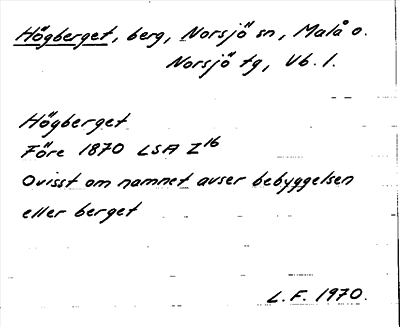 Högberget, berg, Norsjö sn, Malå o.
Norsjö tg, Vb. l.
Högberget
Före 1870 LSA Z16
Ovisst om namnet avser bebyggelsen
eller berget
L.F. 1970.